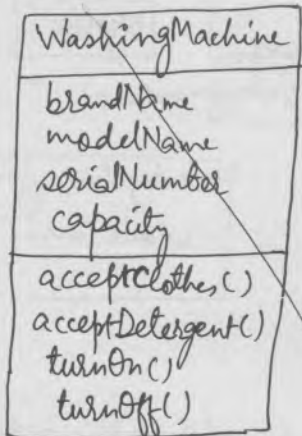 WashingMachine
brandName
modelName
serialNumber
capacity
acceptClothes()
acceptDetergent()
turnOn()
turnOff()